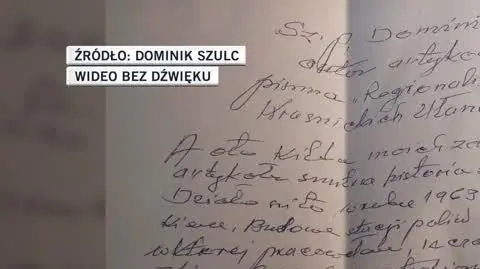 ŹRÓDŁO: DOMINIK SZULC
WIDEO BEZ DŹWIĘKU
Sz. P. Domini
autor artyku
pisma "Regional
Kraśnickich Ułanó
A oto kilka moich za
artykułu smutna historia
Działo się to w roku 1963
Kierc, Budowa stacji paliw
w której pracowałem,